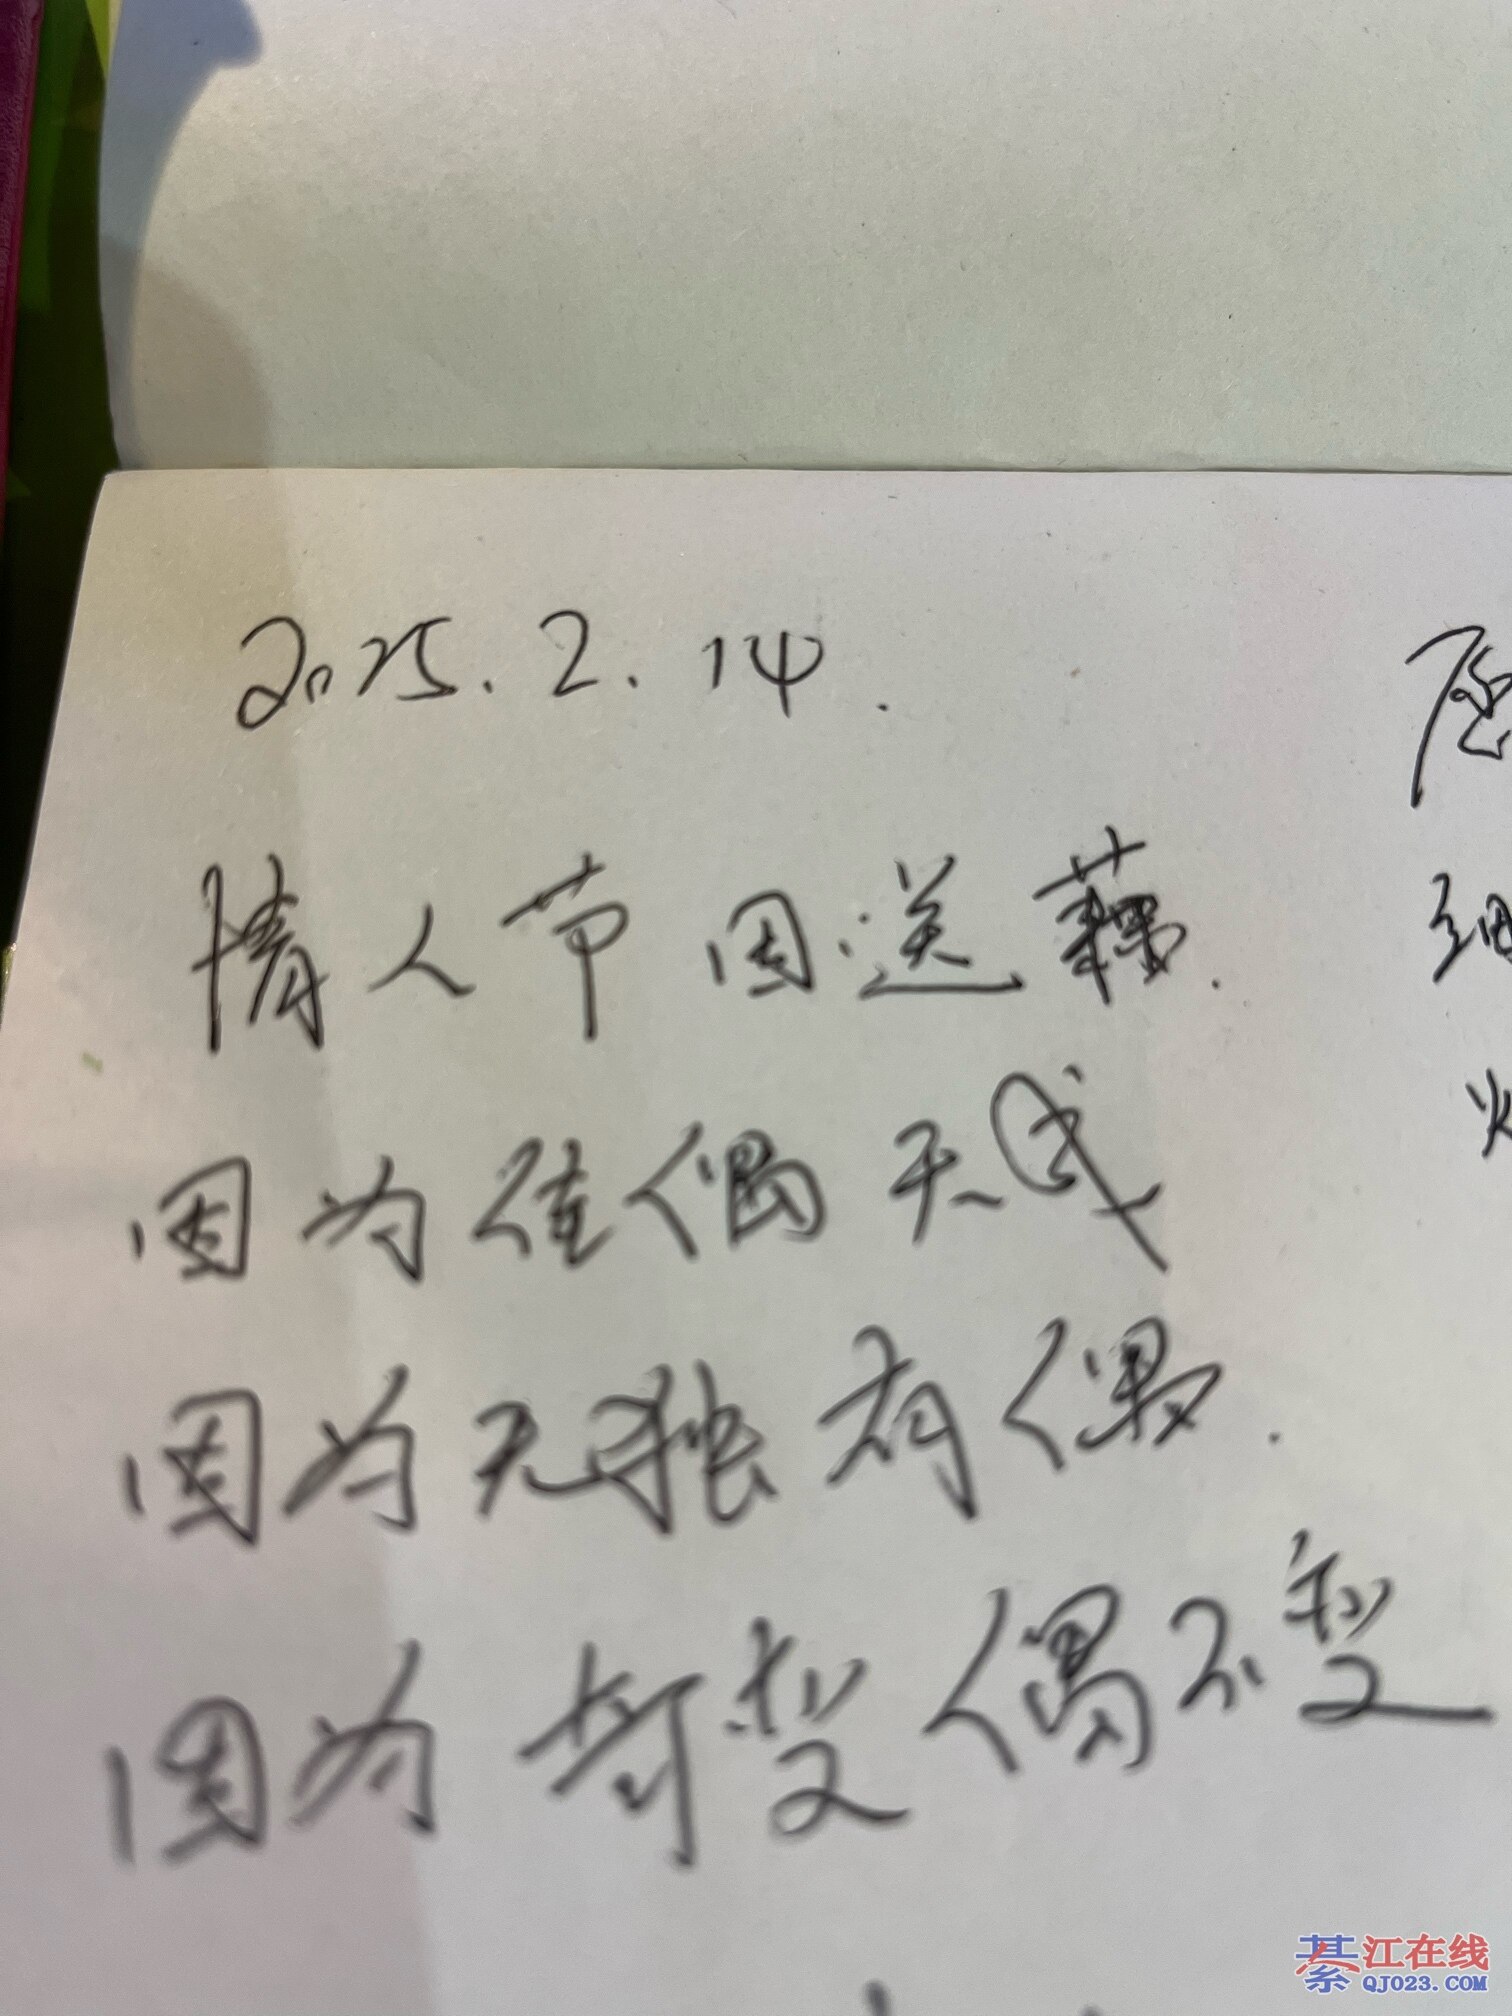 2025.2.14.
情人节因送藕.
因为佳偶天成
因为无独有偶.
因为奇变偶不变
细
綦江在线
QJ023.COM